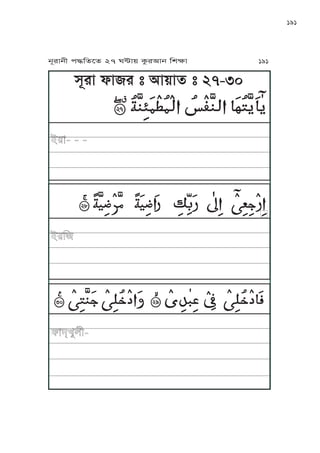 ১৯১
নূরানী পদ্ধতিতে ২৭ ঘণ্টায় কুরআন শিক্ষা ১৯১
সূরা ফাজর ঃ আয়াত ঃ ২৭-৩০
يٰۤاَيَّتُهَا النَّفْسُ الْمُطْمَئِنَّةُ ۝٢٧
ইয়া- - -
ارْجِعِىْۤ اِلٰى رَبِّكِ رَاضِيَةً مَّرْضِيَّةً ۝٢٨
ইরজি
فَادْخُلِىْ فِىْ عِبٰدِىْ ۝٢٩ وَادْخُلِىْ جَنَّتِىْ ۝٣٠
ফাদ্খুলী-